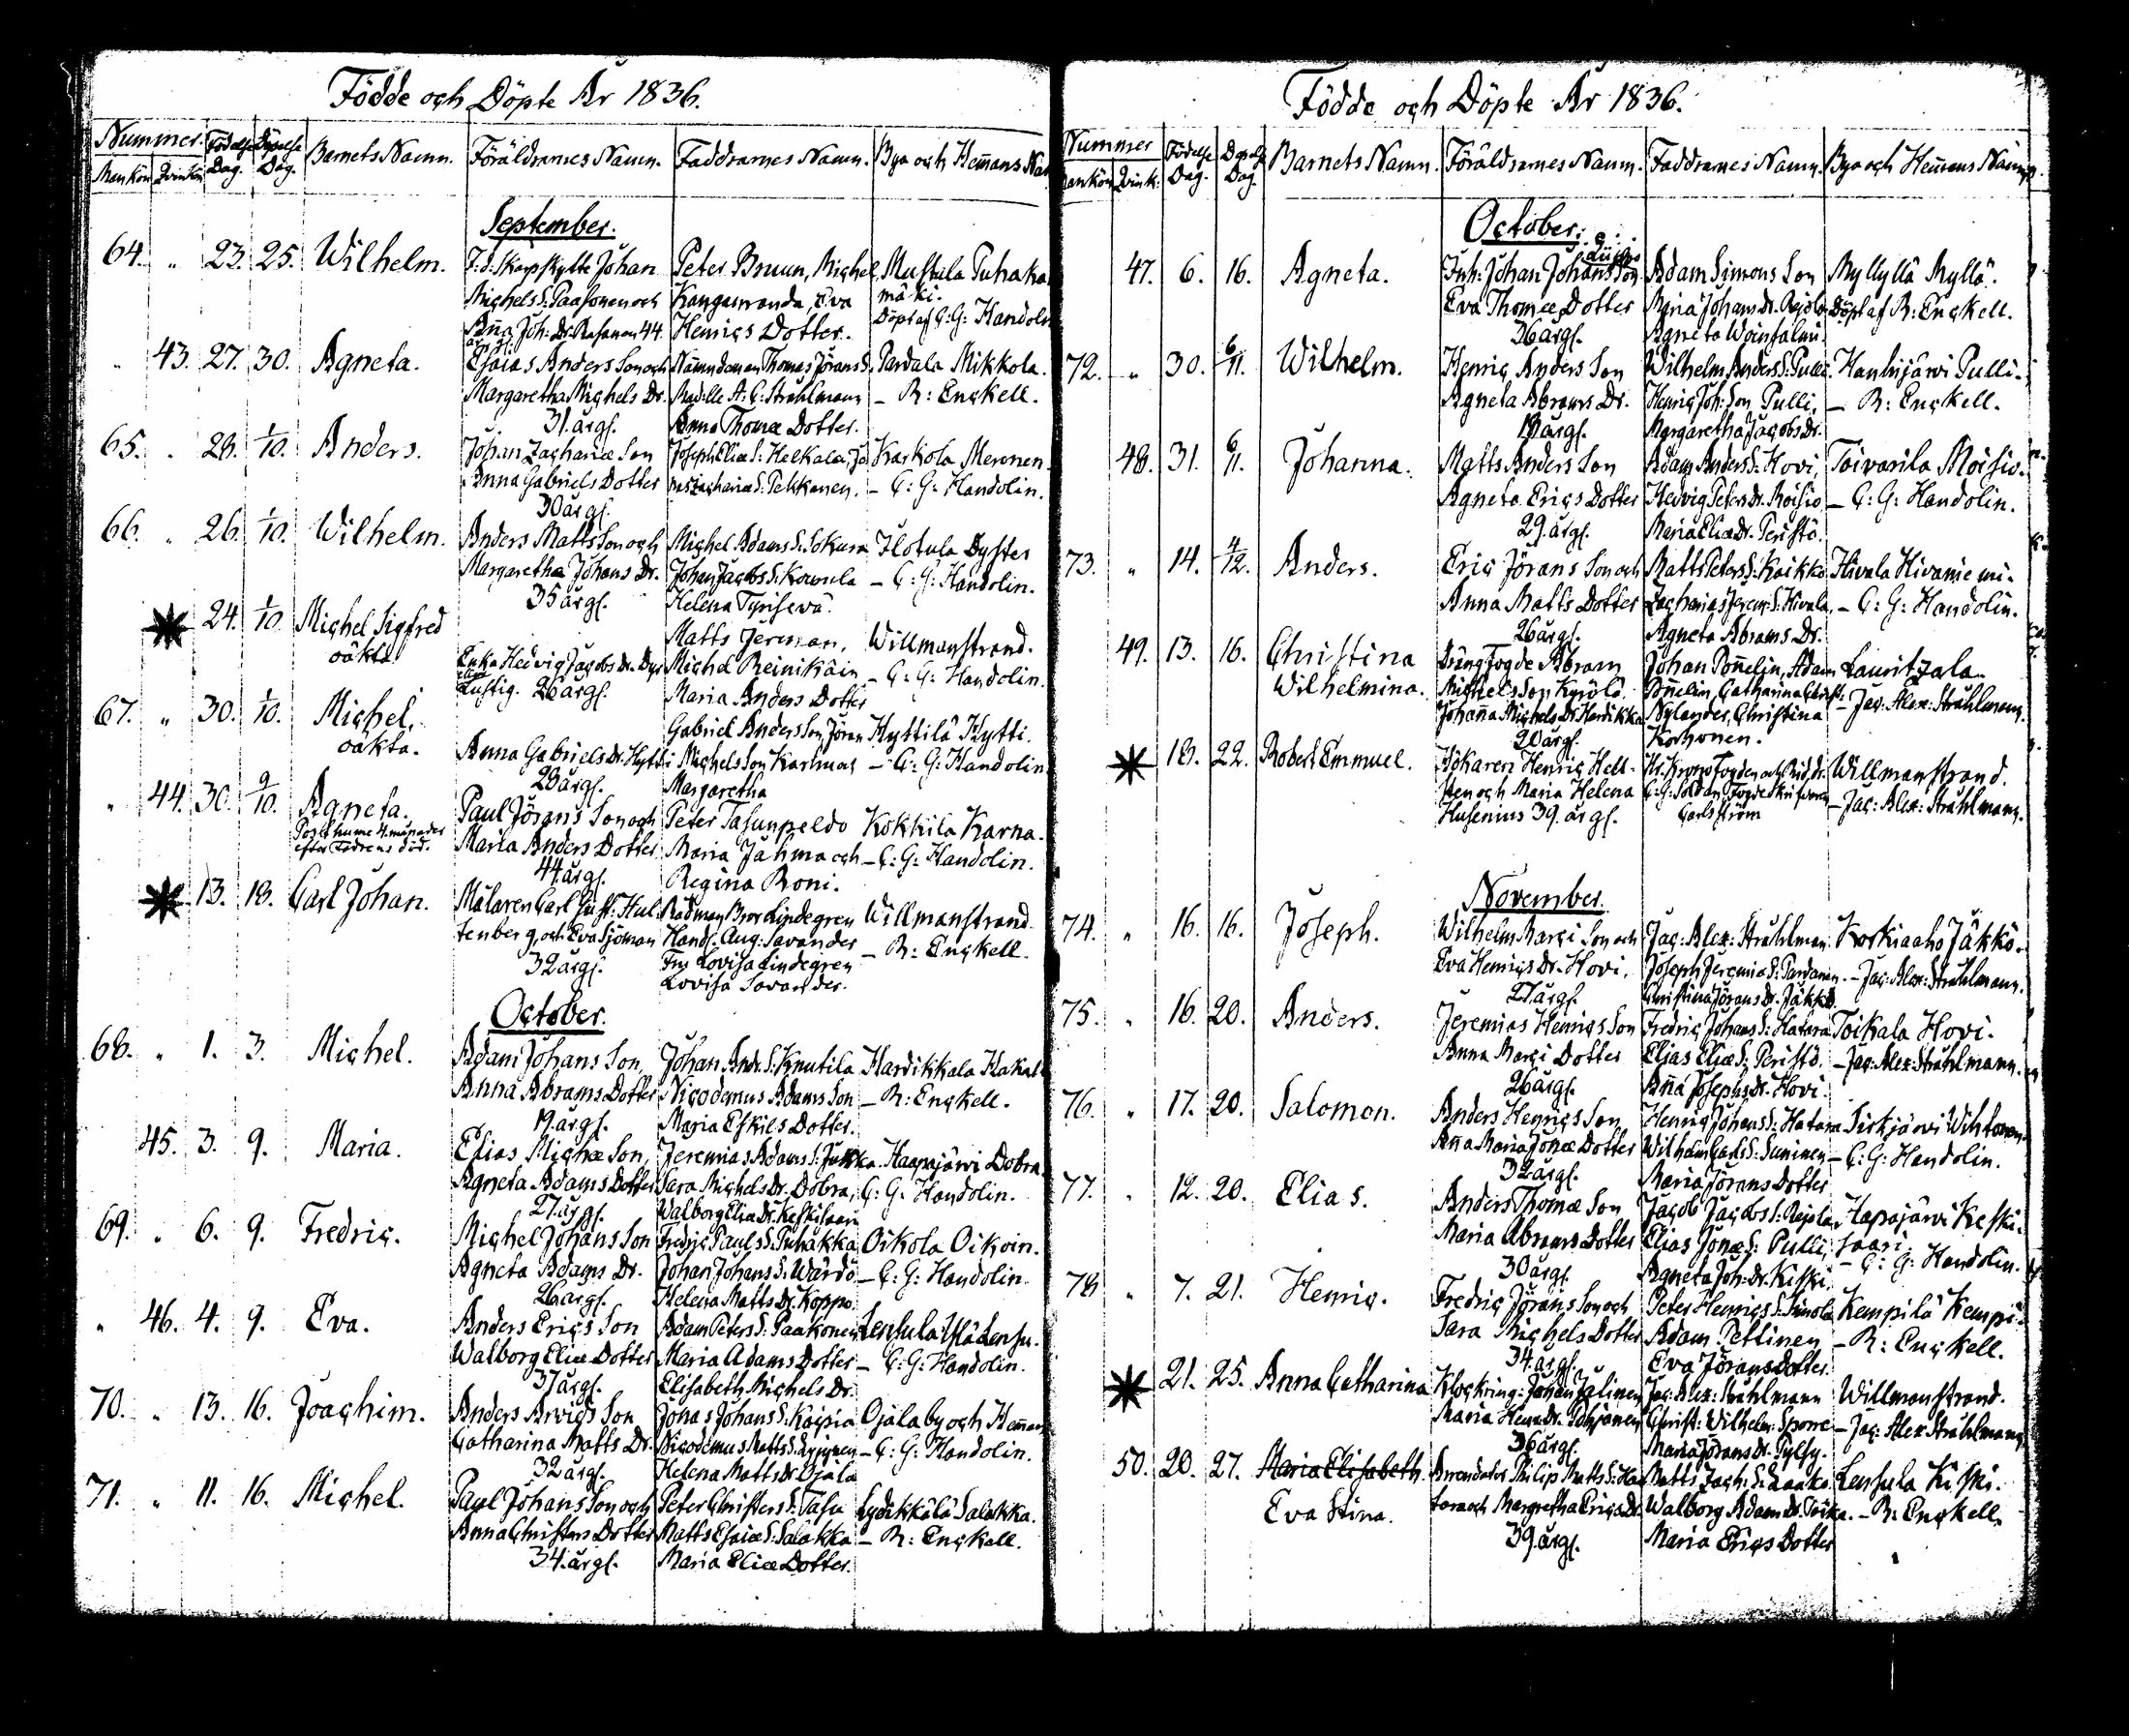 Födde och Döpte År 1836.
Nummer. Födelse Döpelse Barnets Namn. Föräldrarnes Namn. Faddrarnes Namn. Bya och Hem̄ans Nam
Mankön Qvinkön Dag. Dag.
September.
64. " 23. 25. Wilhelm. F: d: Skarpskytte Johan Peter Bruun, Michel Mustala Puhaka
Michels S: Paasonen och Kangasmanda, Eva mäki.
An̄a Joh: Dr. Rasanen 44. Henrics Dotter. Döpt af C: G: Handolin
år gl.
" 43. 27. 30. Agneta. Esaias Anders Son och Nämndeman Thomas Jörans S. Pardala Mikkola.
Margaretha Michels Dr. Madlle A: C: Strahlmann – R: Enckell.
31. årgl. Anna Thomæ Dotter.
65. " 28. 1/10. Anders. Johan Zachariæ Son Joseph Eliæ S: Heikala, Jo Karkola Mennen
Anna Gabriels Dotter nas Zachariæ S: Pekkanen. – C: G: Handolin.
30 årgl.
66. " 26. 1/10. Wilhelm. Anders Matts Son och Michel Adams S: Sokura Ilotula Dyster
Margaretha Johans Dr. Johan Jacobs S: Kounula – C: G: Handolin.
35 årgl. Helena Tyrisevä.
24. 1/10. Michel Sigfred Matts Jerman, Willmanstrand.
oäkta. Enka Hedvig Jacobs Dr. Michel Reinikäin – C: G: Handolin.
Lustig. 26 årgl. Maria Anders Dotter
67. " 30. 1/10. Michel. Gabriel Anders Son, Jöran Hyttilä Hytti.
oäkta. Anna Gabriels Dr. Hytti Michels Son Karhuas – C: G: Handolin
28 årgl. Margaretha
" 44. 30. 9/10. Agneta. Paul Jörans Son och Peter Tasunpeldo Kokkila Karna.
Posthume 4. månader Maria Anders Dotter Maria Jahma och – C: G: Handolin.
efter Fadrens död. 44 årgl. Regina Roni.
13. 18. Carl Johan. Målaren Carl Gust: Hul- Rådman Bror Lindegren Willmanstrand
tenberg, och Eva Sjöman Handl. Aug: Savander – R: Enckell.
32 årgl. Fru Lovisa Lindegren
Lovisa Savander.
October.
68. " 1. 3. Michel. Adam Johans Son, Johan Andr. S: Knutila Hardikkala Hakal
Anna Abrams Dotter Nicodemus Adams Son – R: Enckell.
19. årgl. Maria Eskils Dotter.
45. 3. 9. Maria. Elias Michæ Son, Jeremias Adams S: Jukka. Haapajärwi Dobra
Agneta Adams Dotter Sara Michels Dr. Dobra, C: G: Handolin.
27. årgl. Walborg Eliæ Dr. Keskisaari
69. " 6. 9. Fredric. Michel Johans Son Fredric Pauls S: Puhakka Oikola Oikoin.
Agneta Adams Dr. Johan Johans S: Wärdö – C: G: Handolin.
26 årgl. Helena Matts Dr. Koppo.
" 46. 4. 9. Eva. Anders Erics Son Adam Peters S: Paakonen Lensula Ylädensu.
Walborg Eliæ Dotter Maria Adams Dotter – C: G: Handolin.
37 årgl. Elisabeth Michels Dr.
70. " 13. 16. Joachim. Anders Arvids Son Jonas Johans S: Kaipia Ojala by och Hem̄an
Catharina Matts Dr. Nicodemus Matts S: – C: G: Handolin.
32 årgl. Helena Matts Dr. Ojala
71. " 11. 16. Michel. Paul Johans Son och Peter Christers S: Tasa Lydikkälä Salakka.
Anna Christers Dotter Matts Esaiæ S: Salakka – R: Enckell.
34. årgl. Maria Eliæ Dotter.
Födde och Döpte År 1836.
Nummer Födelse Döpelse Barnets Namn. Föräldrarnes Namn. Faddrarnes Namn. Bya och Hem̄ans Namn.
Mankön Qvink: Dag. Dag.
October.
47. 6. 16. Agneta. Inh: Johan Johans Son Adam Simons Son Myllylä Myllä.
Eva Thomæ Dotter Maria Johans Dr. Rejola Döpt af R: Enckell.
36 årgl. Agneta Woinsalmi.
72. " 30. 6/11. Wilhelm. Henric Anders Son Wilhelm Anders S: Pulli. Hanhijärwi Pulli.
Agneta Abrams Dr. Henric Joh: Son Pulli, – R: Enckell.
19 årgl. Margaretha Jacobs Dr.
48. 31. 6/11. Johanna. Matts Anders Son Adam Anders S: Hovi, Toivarila Moisio.
Agneta Erics Dotter Hedvig Peters Dr. Moisio – C: G: Handolin.
29. årgl. Maria Eliæ Dr. Peristö.
73. " 14. 4/12. Anders. Eric Jörans Son och Matts Peters S: Kaikko Hivala Hivanie mi.
Anna Matts Dotter Zacharias Jerem: S: Hivala, – C: G: Handolin.
26 årgl. Agneta Abrams Dr.
49. 13. 16. Christina Dräng Fogde Abram Johan Pon̄elin, Adam Lauritzala.
Wilhelmina. Michels Son Kyrölä Pon̄elin, Catharina Christ: – Jac: Alex: Strahlmann.
Johan̄a Michels Dr. Hardikka Nylander, Christina
20 årgl. Korhonen.
18. 22. Robert Emmuel. Ihåkaren Henric Hell- Hr. Krono Fogden och Rid. dr. Willmanstrand.
sten och Maria Helena C: G: Soldan, Fogde Skrifvaren – Jac: Alex: Strahlmann.
Husenius 39. årgl. Carlström
November.
74. " 16. 16. Joseph. Wilhelm Marci Son och Jac: Alex: Strahlman Korkiaaho Jäkkö.
Eva Henrics Dr. Hovi. Joseph Jeremiæ S: Pardanen. – Jac: Alex: Strahlmann.
27. årgl. Christina Jörans Dr. Jäkkö.
75. " 16. 20. Anders. Jeremias Henrics Son Fredric Johans S: Hatara Toikala Hovi.
Anna Marci Dotter Elias Eliæ S: Peristö. – Jac: Alex: Strahlmann.
26 årgl. An̄a Josephs Dr. Hovi.
76. " 17. 20. Salomon. Anders Henrics Son Henric Johans S: Hatara Sirkjärwi Wihtonen
An̄a Maria Jonæ Dotter Wilhelm Carls S: Suninen – C: G: Handolin.
32 årgl. Maria Jörans Dotter
77. " 12. 20. Elias. Anders Thomæ Son Jacob Jacobs S: Rejola, Hapajärwi Keski-
Maria Abrams Dotter Elias Jonæ S: Pulli, saari.
30 årgl. Agneta Joh: Dr. Kiski. – C: G: Handolin.
78 " 7. 21. Henric. Fredric Jörans Son och Peter Henrics S: Simola Kempilä Kempi.
Sara Michels Dotter Adam Pettinen – R: Enckell.
34. årgl. Eva Jörans dotter.
21. 25. Anna Catharina Klockring: Johan Jalinen Jac: Alex: Strahlmann Willmanstrand.
Maria Henr: Dr. Pohjanen Christ: Wilhelm: Sporre – Jac: Alex Strahlmann
36 årgl. Maria Jörans Dr. Pylsy.
50. 20. 27. Maria Elisabeth. Arrendator Philip Matts S: Ha Matts Zach: S: Laako. Lensula Kiski.
Eva Stina. tara och Margretha Erics Dr. Walborg Adam Dr. Toika. – R: Enckell.
39. årgl. Maria Erics Dotter